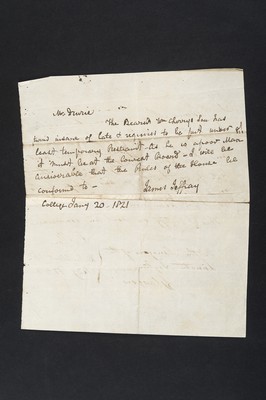 Mr Drurie
The Bearer Wm Cherrys Son has
been insane of late & requires to be put under at
least temporary Restraint. As he is a poor Man
it must be at the lowest Board - I will be
answerable that the Rules of the House be
conformed to -
James Jeffray
College Jany 20. 1821